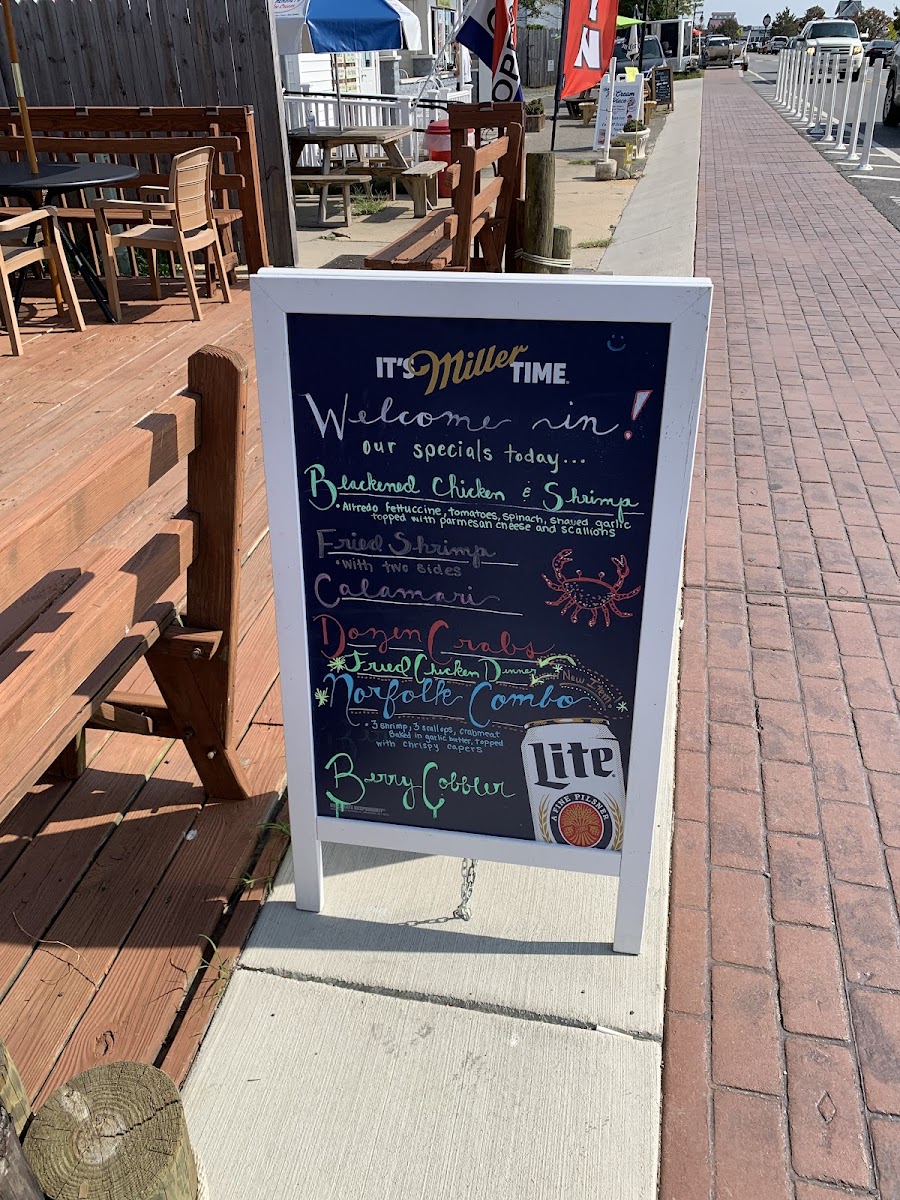 OPE
IN
Cream
IT'S Miller TIME
Welcome in!
our specials today...
Blackened Chicken & Shrimp
• Alfredo fettuccine, tomatoes, spinach, shaved garlic
topped with parmesan cheese and scallions
Fried Shrimp
• with two sides
Calamari
Dozen Crabs
Fried Chicken Dinner
New Item
Norfolk Combo
• 3 shrimp, 3 scallops, crabmeat
Baked in garlic butter, topped
with chrispy capers
Berry Cobbler
Lite
A FINE PILSNER